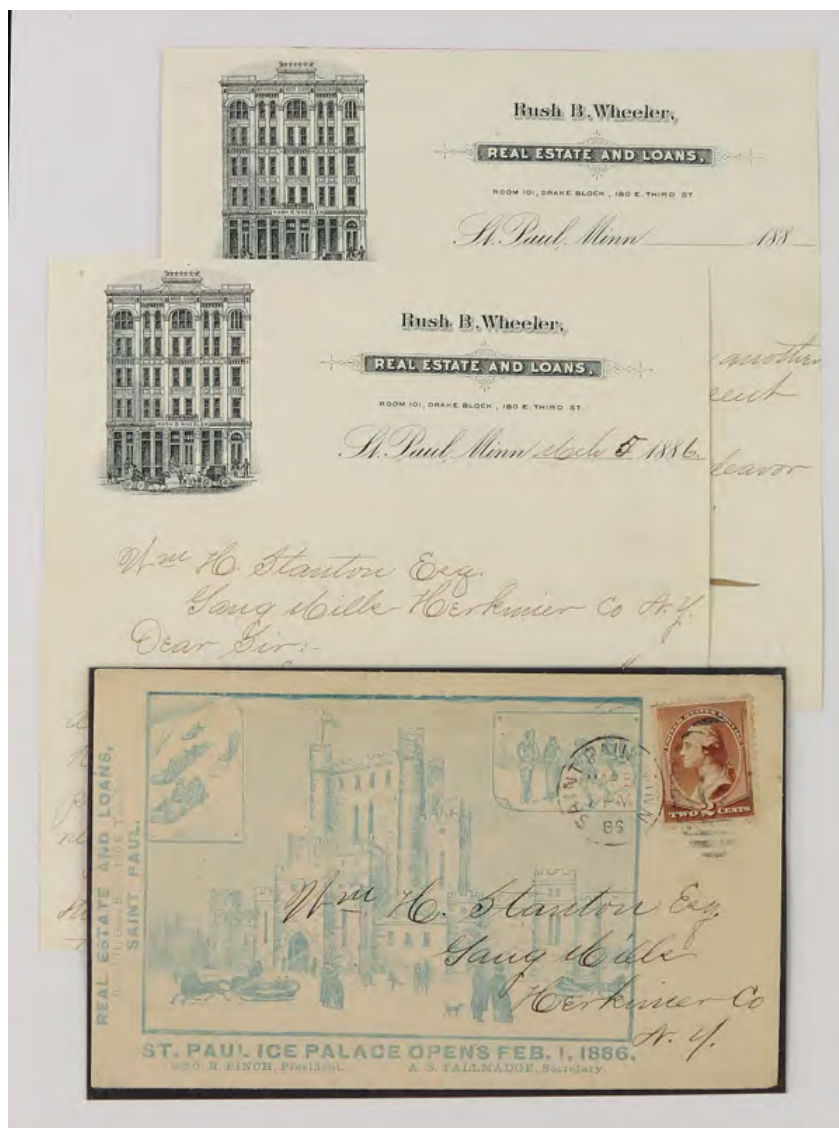 Rush B. Wheeler,
REAL ESTATE AND LOANS.
ROOM 101, DRAKE BLOCK, 180 E. THIRD ST
St. Paul, Minn 188
another
RUSH B. WHEELER
Rush B. Wheeler,
REAL ESTATE AND LOANS.
ROOM 101, DRAKE BLOCK, 180 E. THIRD ST.
St. Paul, Minn Mch 5 1886.
RUSH B. WHEELER
Wm H. Stanton Esq.
Gang Mills Herkimer Co N.Y.
Dear Sir:-
REAL ESTATE AND LOANS,
SAINT PAUL.
SAINT PAUL MINN
PM
86
UNITED STATES POSTAGE
TWO 2 CENTS
Wm H. Stanton Esq.
Gang Mills
Herkimer Co
N.Y.
ST. PAUL ICE PALACE OPENS FEB. 1, 1886.
GEO. R. FINCH, President. A. S. TALLMADGE, Secretary.